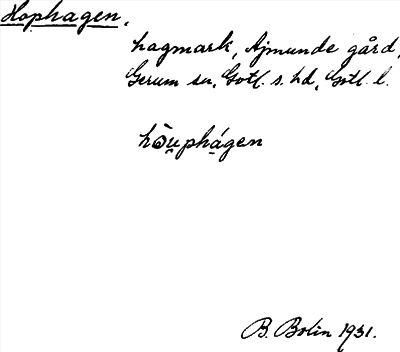 Hophagen.
hagmark, Ajmunde gård,
Gerum sn, Gotl. s. hd, Gotl. l.
hòu̯phá̱gen
B. Bolin 1931.